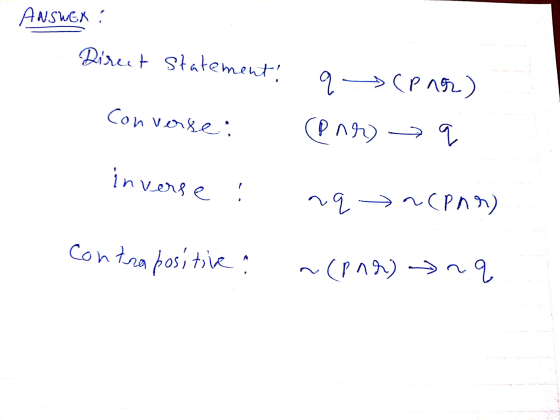 ANSWER:
Direct Statement: q → (P ∧ r)
Converse: (P ∧ r) → q
inverse : ~q → ~(P ∧ r)
Contrapositive: ~(P ∧ r) → ~q